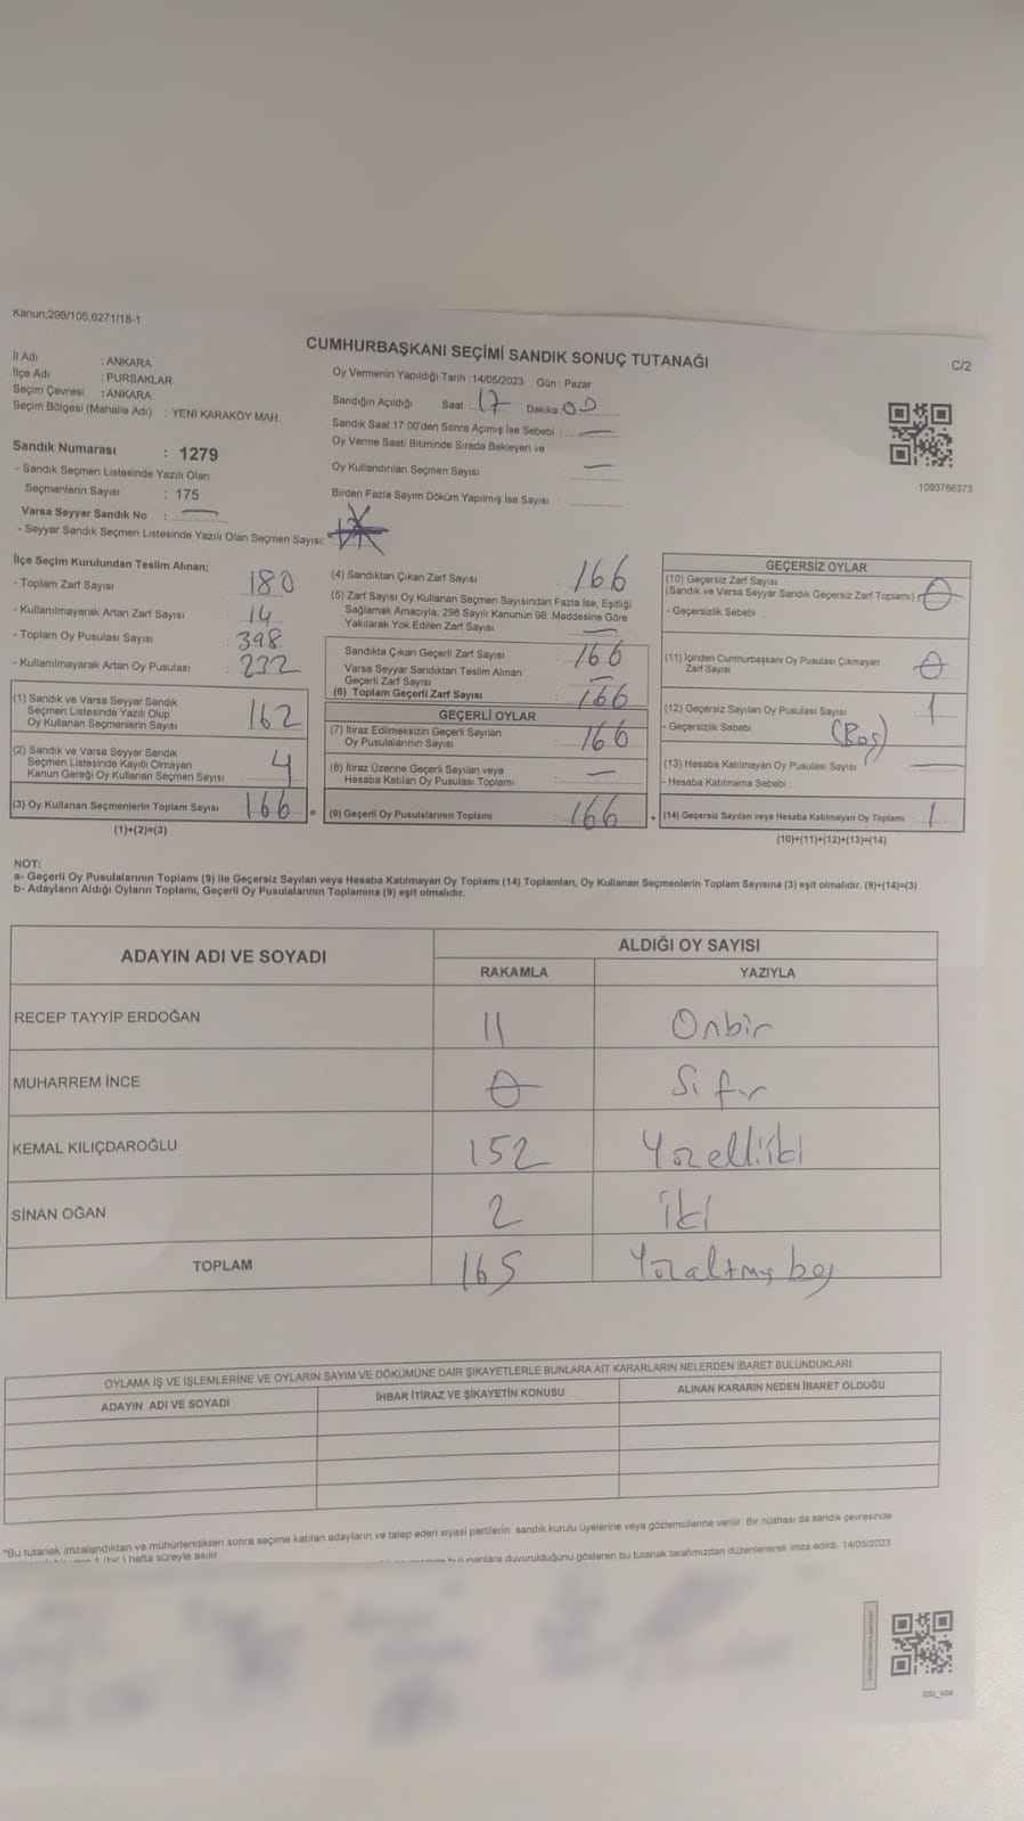 Kanun:298/105,6271/18-1
CUMHURBAŞKANI SEÇİMİ SANDIK SONUÇ TUTANAĞI
C/2
İl Adı : ANKARA
İlçe Adı : PURSAKLAR
Seçim Çevresi : ANKARA
Seçim Bölgesi (Mahalle Adı) : YENİ KARAKÖY MAH.
Oy Vermenin Yapıldığı Tarih : 14/05/2023 Gün : Pazar
Sandığın Açıldığı Saat : 17 Dakika 00
Sandık Saat 17:00'den Sonra Açılmış İse Sebebi : —
Oy Verme Saati Bitiminde Sırada Bekleyen ve
Oy Kullandırılan Seçmen Sayısı —
Birden Fazla Sayım Döküm Yapılmış İse Sayısı
1093766373
Sandık Numarası : 1279
- Sandık Seçmen Listesinde Yazılı Olan
Seçmenlerin Sayısı : 175
Varsa Seyyar Sandık No : —
- Seyyar Sandık Seçmen Listesinde Yazılı Olan Seçmen Sayısı:
İlçe Seçim Kurulundan Teslim Alınan:
- Toplam Zarf Sayısı : 180
- Kullanılmayarak Artan Zarf Sayısı : 14
- Toplam Oy Pusulası Sayısı : 398
- Kullanılmayarak Artan Oy Pusulası : 232
(1) Sandık ve Varsa Seyyar Sandık
Seçmen Listesinde Yazılı Olup
Oy Kullanan Seçmenlerin Sayısı 162
(2) Sandık ve Varsa Seyyar Sandık
Seçmen Listesinde Kayıtlı Olmayan
Kanun Gereği Oy Kullanan Seçmen Sayısı 4
(3) Oy Kullanan Seçmenlerin Toplam Sayısı 166
(1)+(2)=(3)
(4) Sandıktan Çıkan Zarf Sayısı 166
(5) Zarf Sayısı Oy Kullanan Seçmen Sayısından Fazla İse, Eşitliği
Sağlamak Amacıyla, 298 Sayılı Kanunun 98. Maddesine Göre
Yakılarak Yok Edilen Zarf Sayısı —
Sandıkta Çıkan Geçerli Zarf Sayısı 166
Varsa Seyyar Sandıktan Teslim Alınan
Geçerli Zarf Sayısı —
(6) Toplam Geçerli Zarf Sayısı 166
GEÇERLİ OYLAR
(7) İtiraz Edilmeksizin Geçerli Sayılan
Oy Pusulalarının Sayısı 166
(8) İtiraz Üzerine Geçerli Sayılan veya
Hesaba Katılan Oy Pusulası Toplamı —
(9) Geçerli Oy Pusulalarının Toplamı 166
GEÇERSİZ OYLAR
(10) Geçersiz Zarf Sayısı
(Sandık ve Varsa Seyyar Sandık Geçersiz Zarf Toplamı) 0
- Geçersizlik Sebebi :
(11) İçinden Cumhurbaşkanı Oy Pusulası Çıkmayan
Zarf Sayısı 0
(12) Geçersiz Sayılan Oy Pusulası Sayısı 1
- Geçersizlik Sebebi : (Boş)
(13) Hesaba Katılmayan Oy Pusulası Sayısı —
- Hesaba Katılmama Sebebi :
(14) Geçersiz Sayılan veya Hesaba Katılmayan Oy Toplamı 1
(10)+(11)+(12)+(13)=(14)
NOT:
a- Geçerli Oy Pusulalarının Toplamı (9) ile Geçersiz Sayılan veya Hesaba Katılmayan Oy Toplamı (14) Toplamları, Oy Kullanan Seçmenlerin Toplam Sayısına (3) eşit olmalıdır. (9)+(14)=(3)
b- Adayların Aldığı Oyların Toplamı, Geçerli Oy Pusulalarının Toplamına (9) eşit olmalıdır.
ADAYIN ADI VE SOYADI
ALDIĞI OY SAYISI
RAKAMLA YAZIYLA
RECEP TAYYİP ERDOĞAN 11 Onbir
MUHARREM İNCE 0 Sıfır
KEMAL KILIÇDAROĞLU 152 Yüzelliiki
SİNAN OĞAN 2 iki
TOPLAM 165 Yüzaltmış beş
OYLAMA İŞ VE İŞLEMLERİNE VE OYLARIN SAYIM VE DÖKÜMÜNE DAİR ŞİKAYETLERLE BUNLARA AİT KARARLARIN NELERDEN İBARET BULUNDUKLARI
ADAYIN ADI VE SOYADI İHBAR İTİRAZ VE ŞİKAYETİN KONUSU ALINAN KARARIN NEDEN İBARET OLDUĞU
*Bu tutanak imzalandıktan ve mühürlendikten sonra seçime katılan adayların ve talep eden siyasi partilerin sandık kurulu üyelerine veya gözlemcilerine verilir. Bir nüshası da sandık çevresinde
hafta süreyle asılır.
duyurulduğunu gösteren bu tutanak tarafımızdan düzenlenerek imza edildi. 14/05/2023